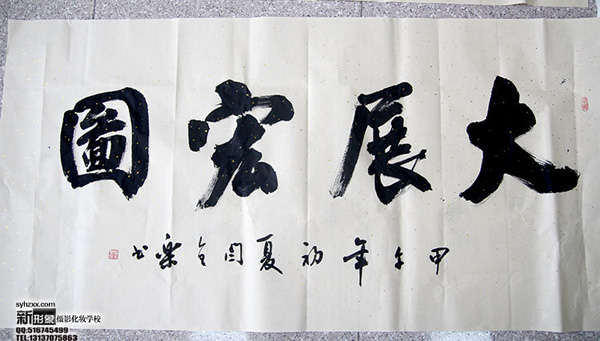 大展宏圖
甲午年初夏闫全樂书
syhzxx.com
新形象摄影化妆学校
QQ:516745499
TEL:13137075863